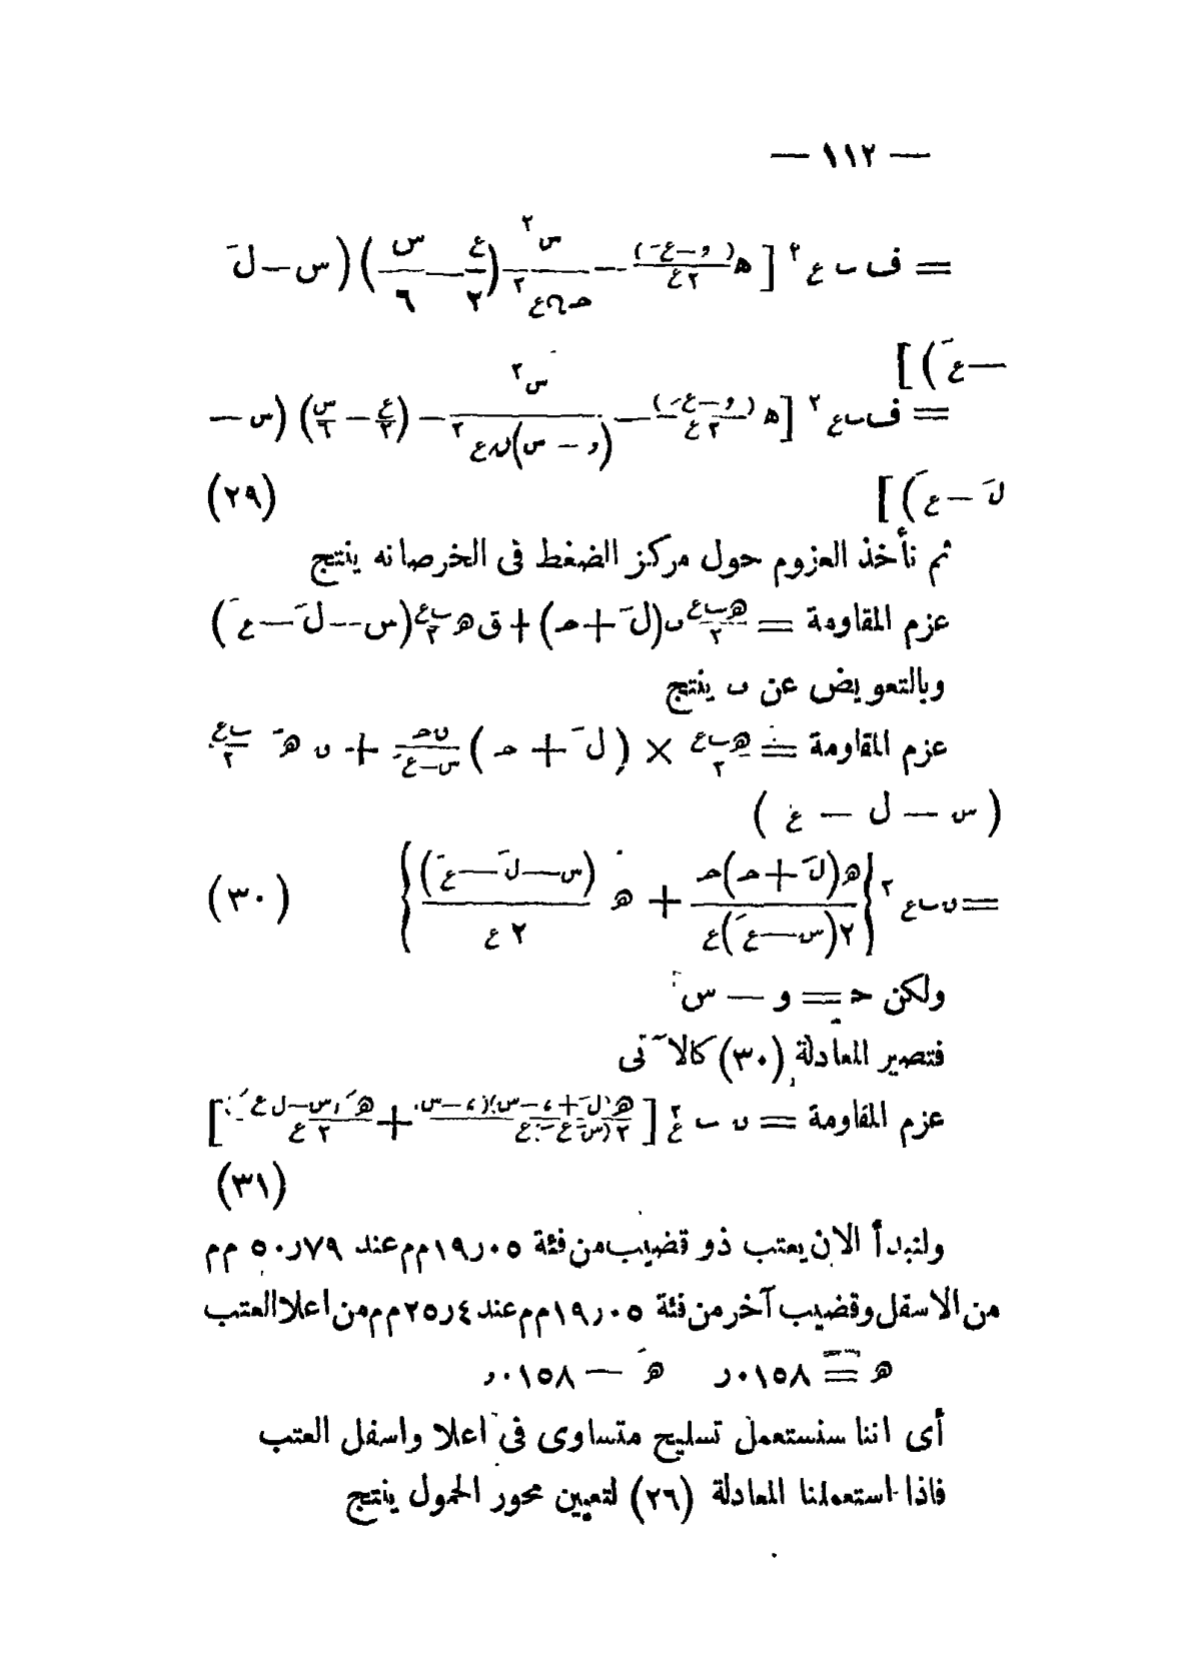 — ١١٢ —
= ف ب ع٢ [ ه (و–عَ)/٢ع – س٢/حہںع٢ (ع/٢ — س/٦) (س–لَ
—عَ) ]
= ف ب ع٢ [ ه (و–عَ)/٢ع – س٢/(و – س)ںع٢ – (ع/٢ – س/٦) (س –
لَ – عَ) ] (٢٩)
ثم نأخذ العزوم حول مركز الضغط فى الخرصانه ينتج
عزم المقاومة = هـ ب ع/٢ ں (لَ + حـ) + ق هـ ب ع/٢ (س – لَ – عَ)
وبالتعويض عن ں ينتج
عزم المقاومة = هـ ب ع/٢ × (لَ + حـ) ںحـ/س–عَ + ں هـَ ب ع/٢
( س – ل – غ )
= ں ب ع٢ { هـ(لَ + حـ)حـ/٢(س–عَ)ع + هـَ (س–لَ–عَ)/٢ع } (٣٠)
ولكن حـ = و – س
فتصير المعادلة (٣٠) كالآتى
عزم المقاومة = ں ب ع٢ [ هـ(لَ + و – س)(و – س)/٢(س – عَ)ع + هـَ(س–ل ع)/٢ع ]
(٣١)
ولنبدأ الان بعتب ذو قضيب من فئة ١٩٫٠٥ مم عند ٥٠٫٧٩ مم
من الاسفل وقضيب آخر من فئة ١٩٫٠٥ مم عند ٢٥٫٤ مم من اعلا العتب
هـ = ٠١٥٨ر هـَ – ٠١٥٨ر
أى اننا سنستعمل تسليح متساوى فى اعلا واسفل العتب
فاذا استعملنا المعادلة (٢٦) لتعيين محور الخمول ينتج